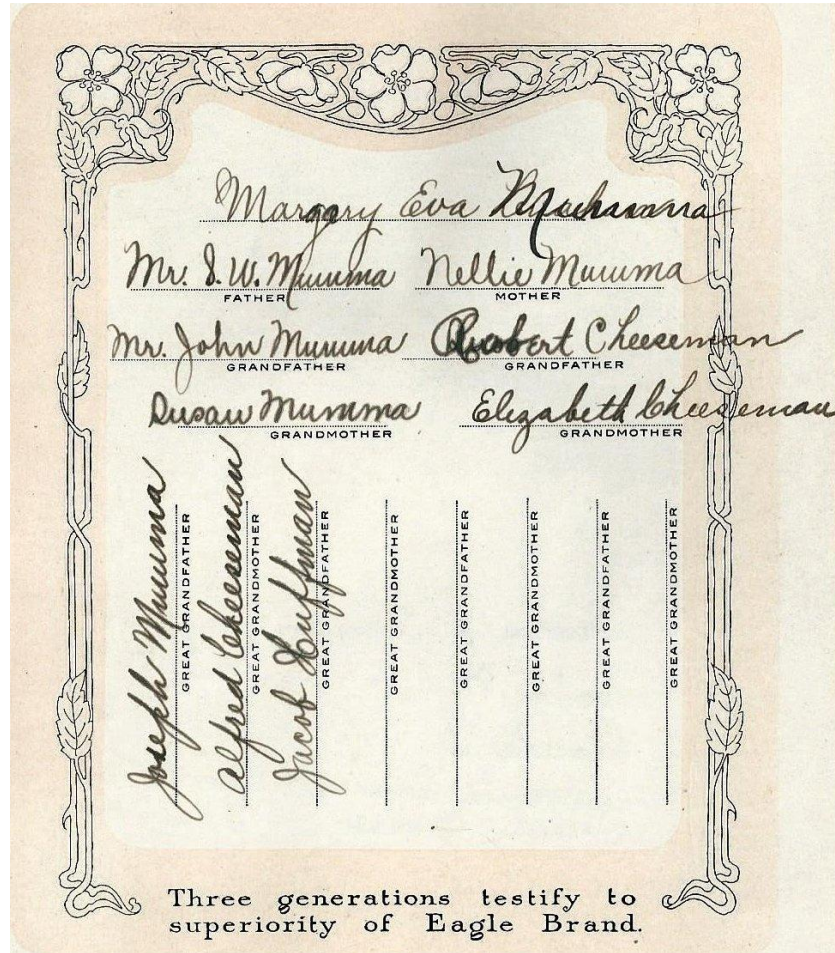 Margary Eva
Mr. S. W. Mumma Nellie Mumma
FATHER MOTHER
Mr. John Mumma Robert Cheeseman
GRANDFATHER GRANDFATHER
Susan Mumma Elizabeth Cheeseman
GRANDMOTHER GRANDMOTHER
Joseph Mumma
GREAT GRANDFATHER
Alfred Cheeseman
GREAT GRANDMOTHER
Jacob Huffman
GREAT GRANDFATHER
GREAT GRANDMOTHER
GREAT GRANDFATHER
GREAT GRANDMOTHER
GREAT GRANDFATHER
GREAT GRANDMOTHER
Three generations testify to
superiority of Eagle Brand.